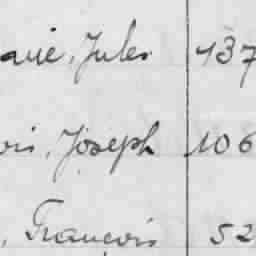 Marie, Jules 137
ois, Joseph 106
, François 52